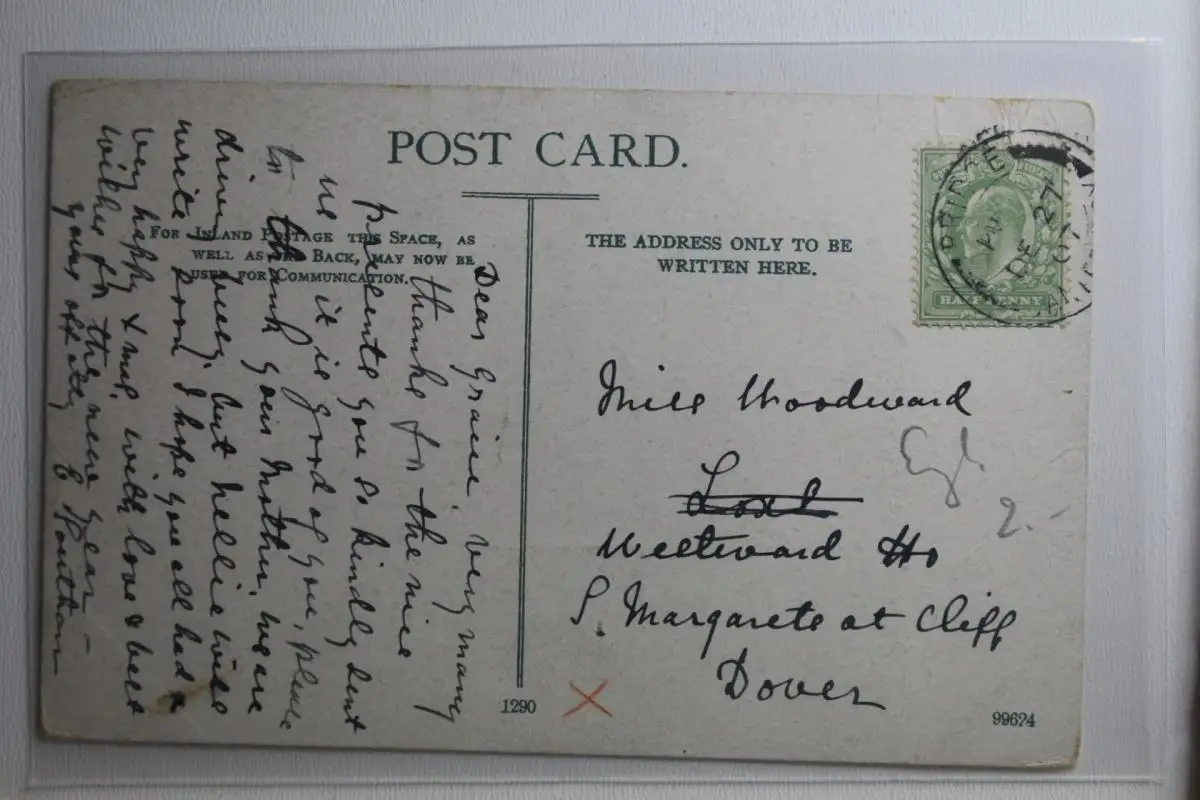 POST CARD.
FOR INLAND POSTAGE THIS SPACE, AS
WELL AS THE BACK, MAY NOW BE
USED FOR COMMUNICATION.
THE ADDRESS ONLY TO BE
WRITTEN HERE.
HALFPENNY
DE 27
Dear Gracie, very many
thanks for the nice
presents you so kindly sent
us it is good of you, please
to thank your Mother, we are
driving busy, but Nellie will
write soon. I hope you all had a
very happy & mas, with love & best
wishes for the new year
yours affctly E
Miss Woodward
Westward Ho
S. Margarets at Cliff
Dover
Engl.
2.-
1290
99624